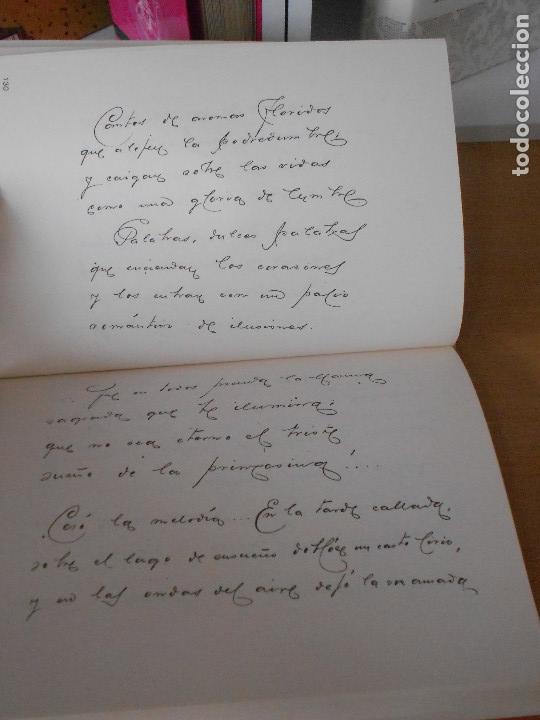 130
Cantos de aromas floridos
que alejen la podredumbre;
y caigan sobre las vidas
como una gloria de lumbre
Palabras, dulces palabras
que enciendan los corazones
y los cubran con un palio
romántico de ilusiones.
en todos prenda la llama
sagrada que te ilumina;
que no sea eterno el triste
sueño de la princesina!....
Cesó la melodía... En la tarde callada,
sobre el lago de ensueño doblóse un casto lirio,
y en las ondas del aire dejó la
todocoleccion
todocoleccion.net